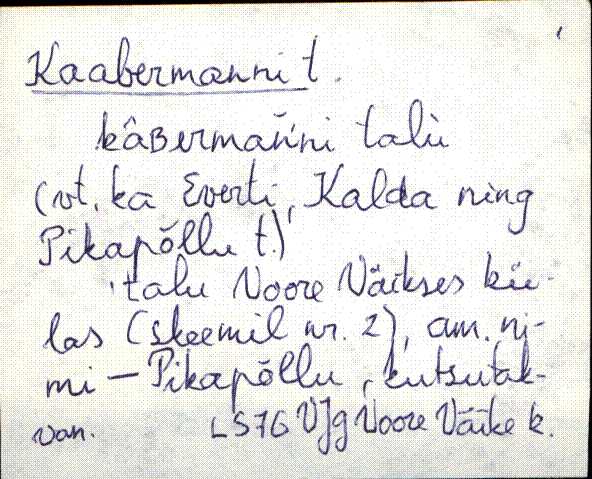 Kaabermanni t.
kâʙermań́ni talù
(vt. ka Everti, Kalda ning
Pikapõllu t.)
talu Voore Väikses kü-
las (skeemil nr. 2), am. ni-
mi – Pikapõllu, kutsutak-
van. LS76 VJg Voore Väike k.